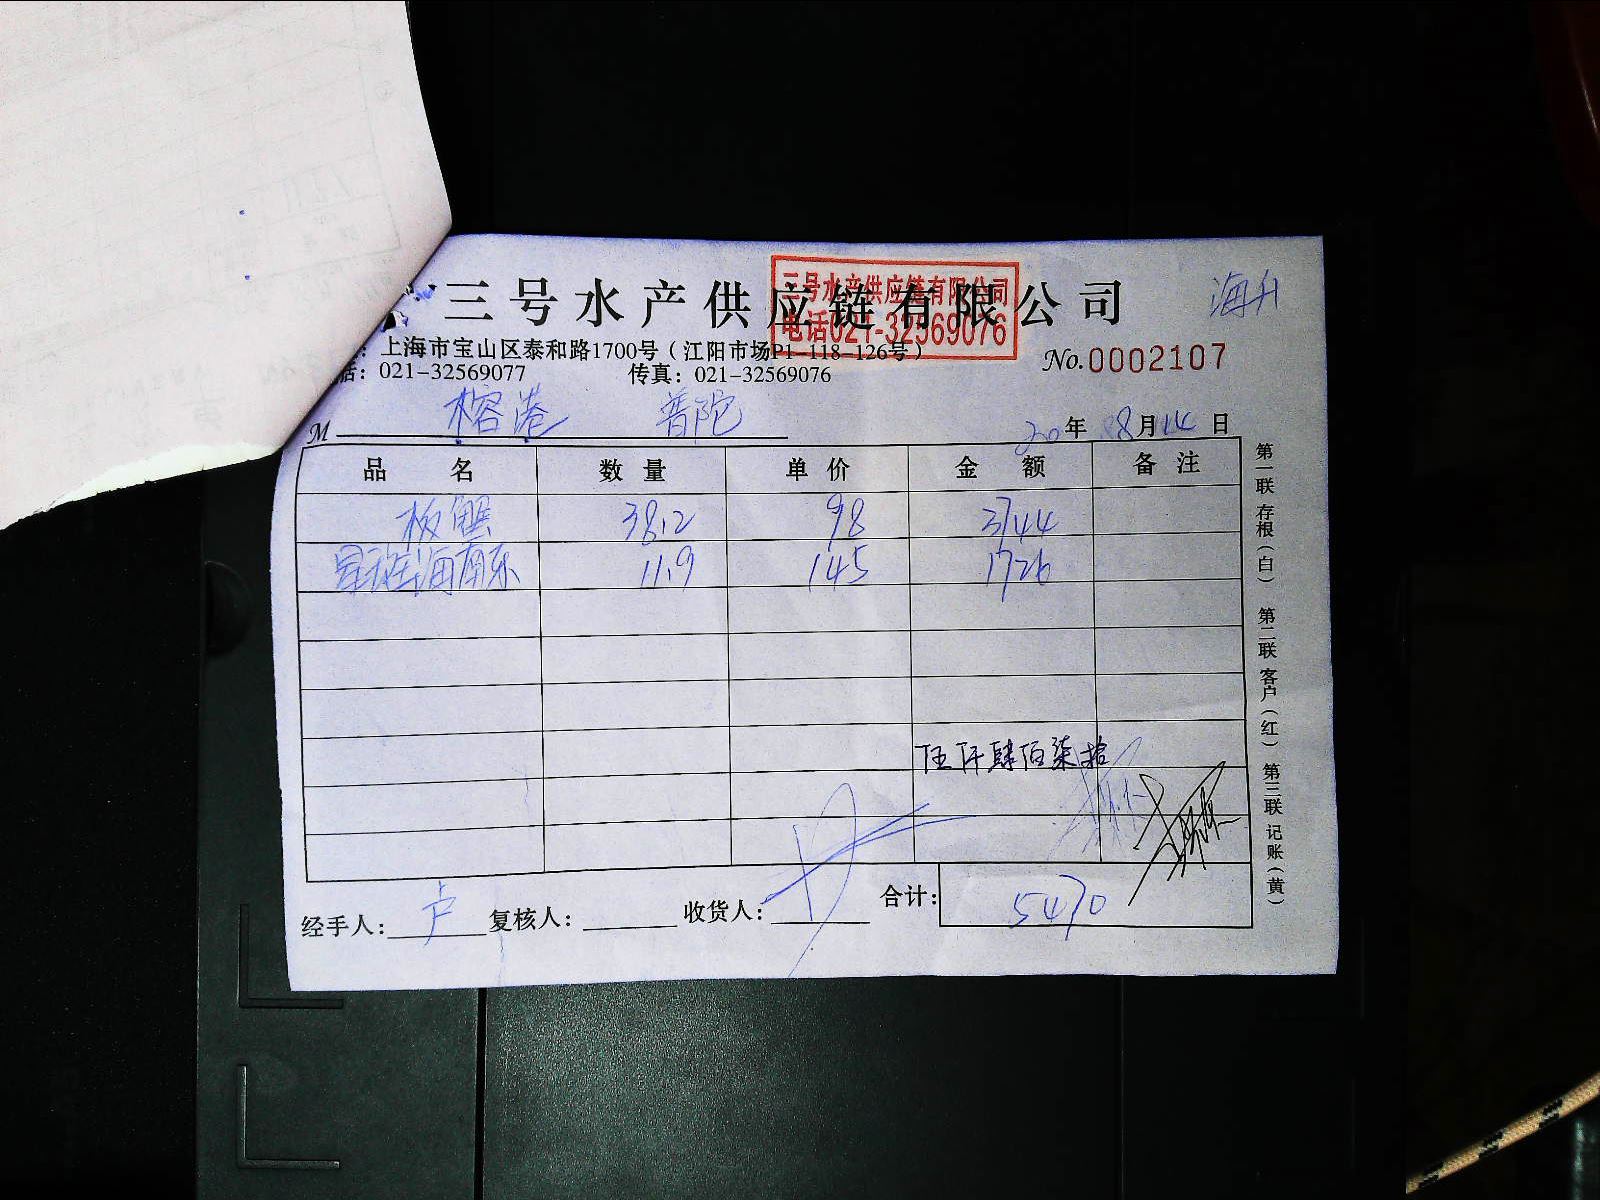 三号水产供应链有限公司
海升
三号水产供应链有限公司
电话021-32569076
：上海市宝山区泰和路1700号（江阳市场P1-118-126号）
话：021-32569077 传真：021-32569076
No.0002107
M 榕港 普陀
20年 08月14日
品名 数量 单价 金额 备注
板蟹 38.2 98 3744
星斑海南东 11.9 145 1726
伍仟肆佰柒拾
经手人：卢 复核人： 收货人： 合计：5470
第一联 存根（白） 第二联 客户（红） 第三联 记账（黄）